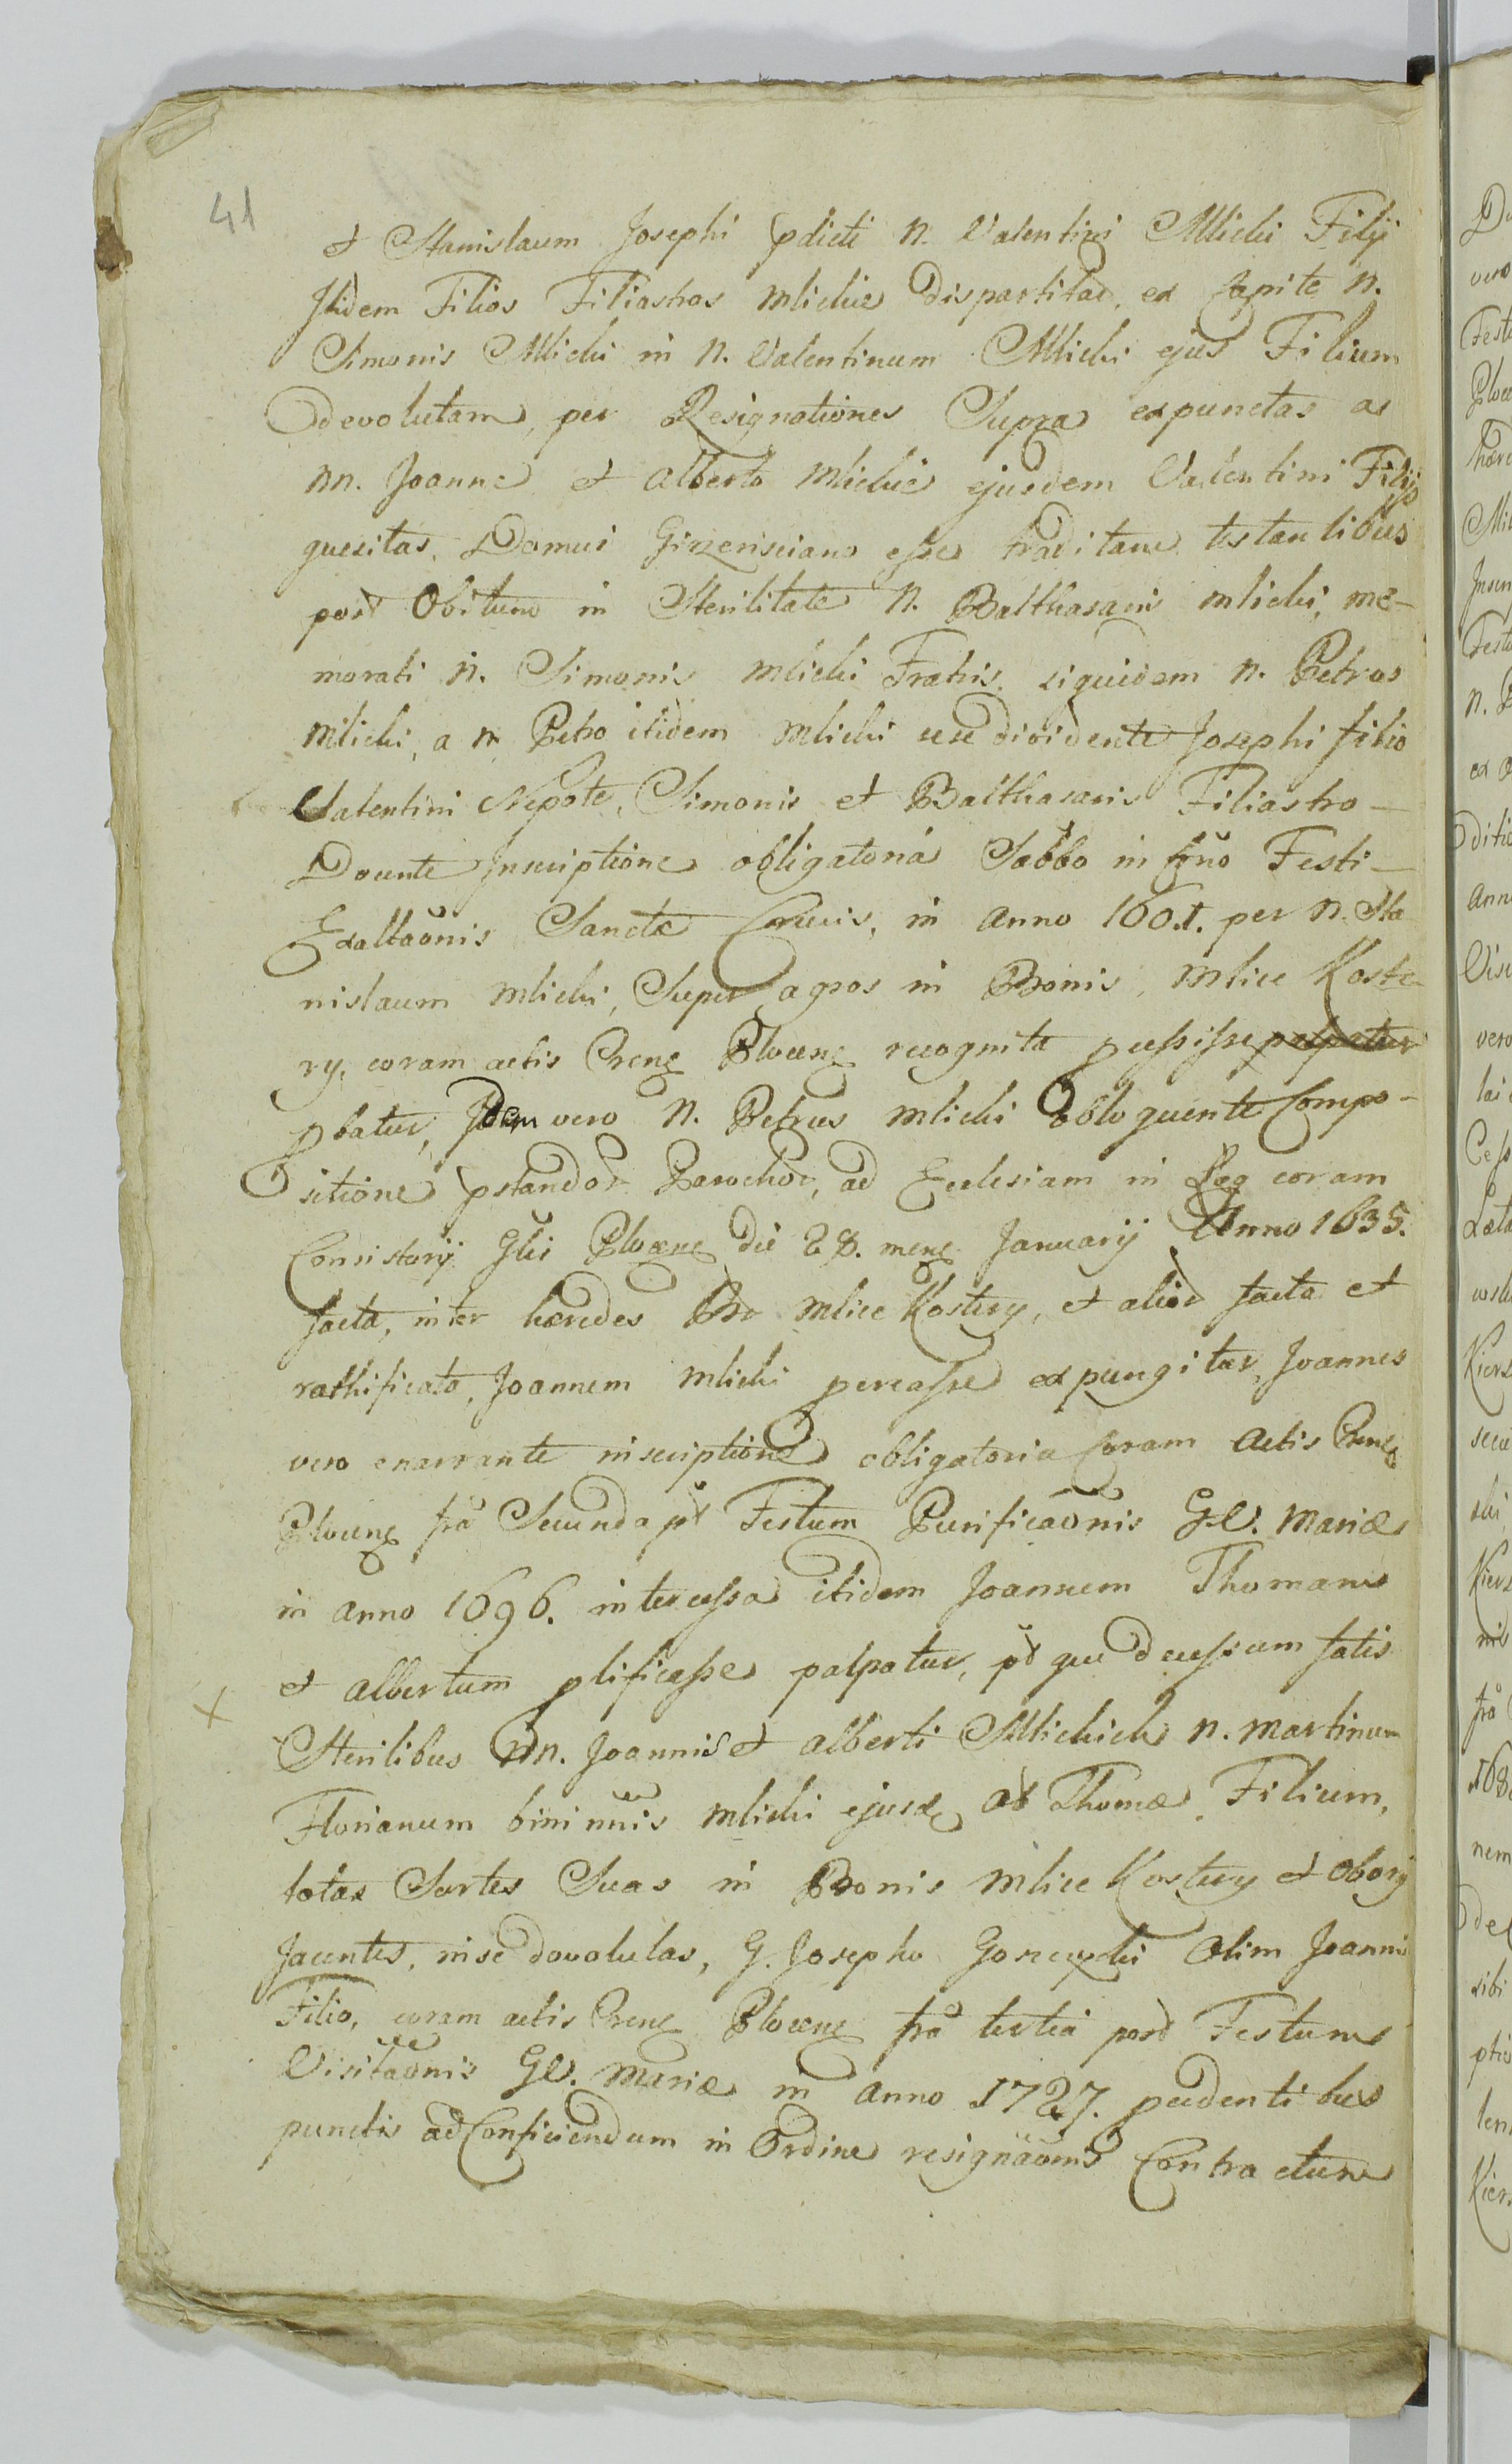 41
et Stanislaum Josephi pdicti N. Valentini Mlicki Filij
Itidem Filios Filiastros Mlickie dispartitad, ex Capite N.
Simonis Mlicki in N. Valentinum Mlicki ejus Filium
devolutam, per Resignationes Supra expunctas a
NN. Joanne et Alberto Mlickie ejusdem Valentini Filijs
quesitas, Domui esse traditam testantibus
post Obitum in Sterilitate N. Balthasaris Mlicki, me-
morati N. Simonis Mlicki Fratris, siquidem N. Petrus
Mlicki, a N. Petro itidem Mlicki sese dividente Josephi filio
Valentini Nepote, Simonis et Balthasaris Filiastro-
Docente Inscriptione obligatoria Sabbo in Festi-
Exaltaonis Sanctæ Crucis, in Anno 160.1. per N. Sta
nislaum Mlicki, Super agros in Bonis, Mlice Koste
ry, coram actis Plocen recognita pcessisse
pbatur, Idem vero N. Petrus Mlicki obloquente Compo-
sitione pstandor Parochor, ad Ecclesiam in coram
Consistorij Glis Plocen die 28. mens Januarij Anno 1635.
facta, inter hæredes Br Mlice Kostery, et alior facta et
rathificato, Joannem Mlicki expungitur, Joannes
vero enarrante inscriptione obligatoria Coram Actis
Plocen fra Secunda pt Festum Purificaonis GV. Mariæ
in anno 1696. intercessa itidem Joannem Thomam
et Albertum plificasse palpatur, pt que decessum fatis
Sterilibus NN. Joannis et Alberti Mlickich N. Martinum
Florianum bini Mlicki ejusd Thomæ Filium,
totas Sortes Suas in Bonis Mlice Kostery et Obory
Jacentes, in se devolutas, G. Josepho Olim Joannis
Filio, coram actis Plocen fra tertia post Festum
Visitaonis GV. Mariæ in Anno 1727. pcedentibus
punctis ad Conficiendum in Ordine resignaonis Contractum